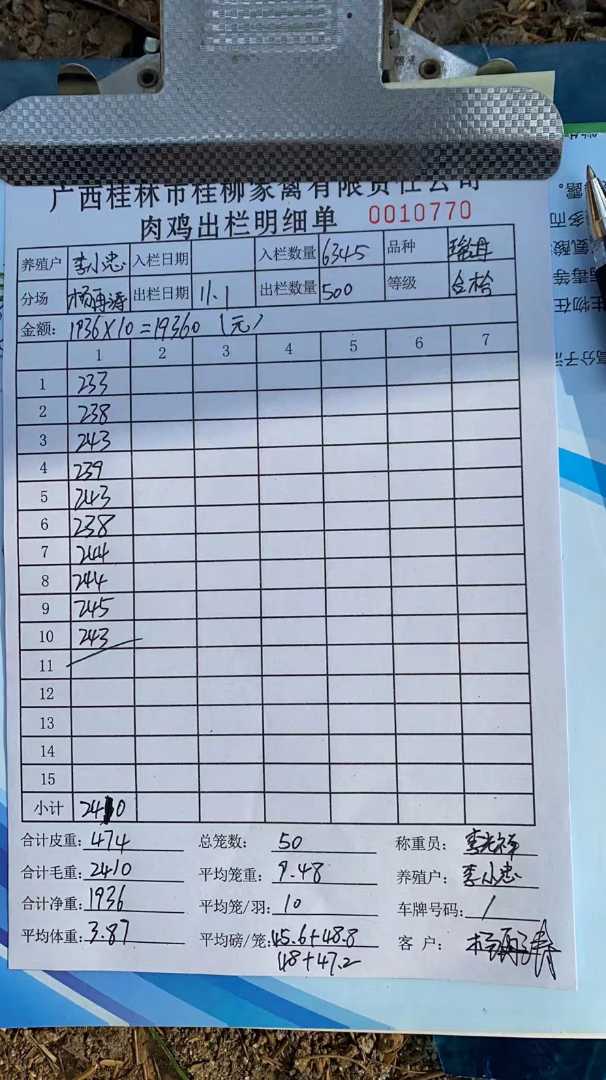 广西桂林市桂柳家禽有限责任公司
肉鸡出栏明细单 0010770
养殖户 李小忠 入栏日期 入栏数量 6345 品种 瑶丹
分场 杨再涛 出栏日期 11.1 出栏数量 500 等级 合格
金额: 1936×10=19360 (元)
1 2 3 4 5 6 7
1 233
2 238
3 243
4 239
5 243
6 238
7 244
8 244
9 245
10 243
11
12
13
14
15
小计 2410
合计皮重: 474 总笼数: 50 称重员:
合计毛重: 2410 平均笼重: 9.48 养殖户: 李小忠
合计净重: 1936 平均笼/羽: 10 车牌号码: /
平均体重: 3.87 平均磅/笼: 45.6+48.8 客户:
48+47.2